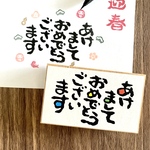 迎春
あけ
まして
おめでとう
ござい
ます
あけ
まして
おめでとう
ござい
ます